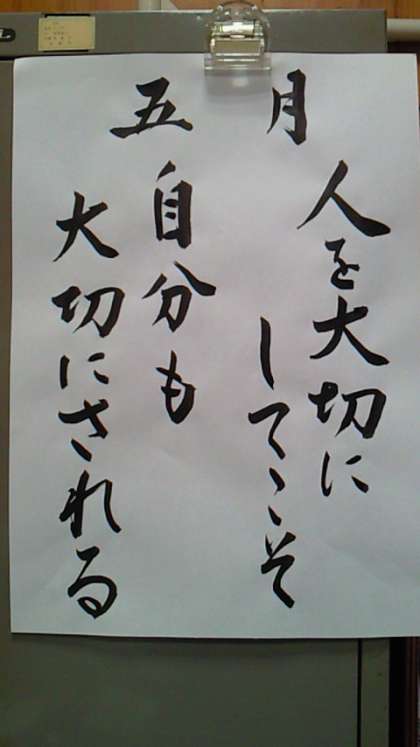 五月
人を大切に
してこそ
自分も
大切にされる